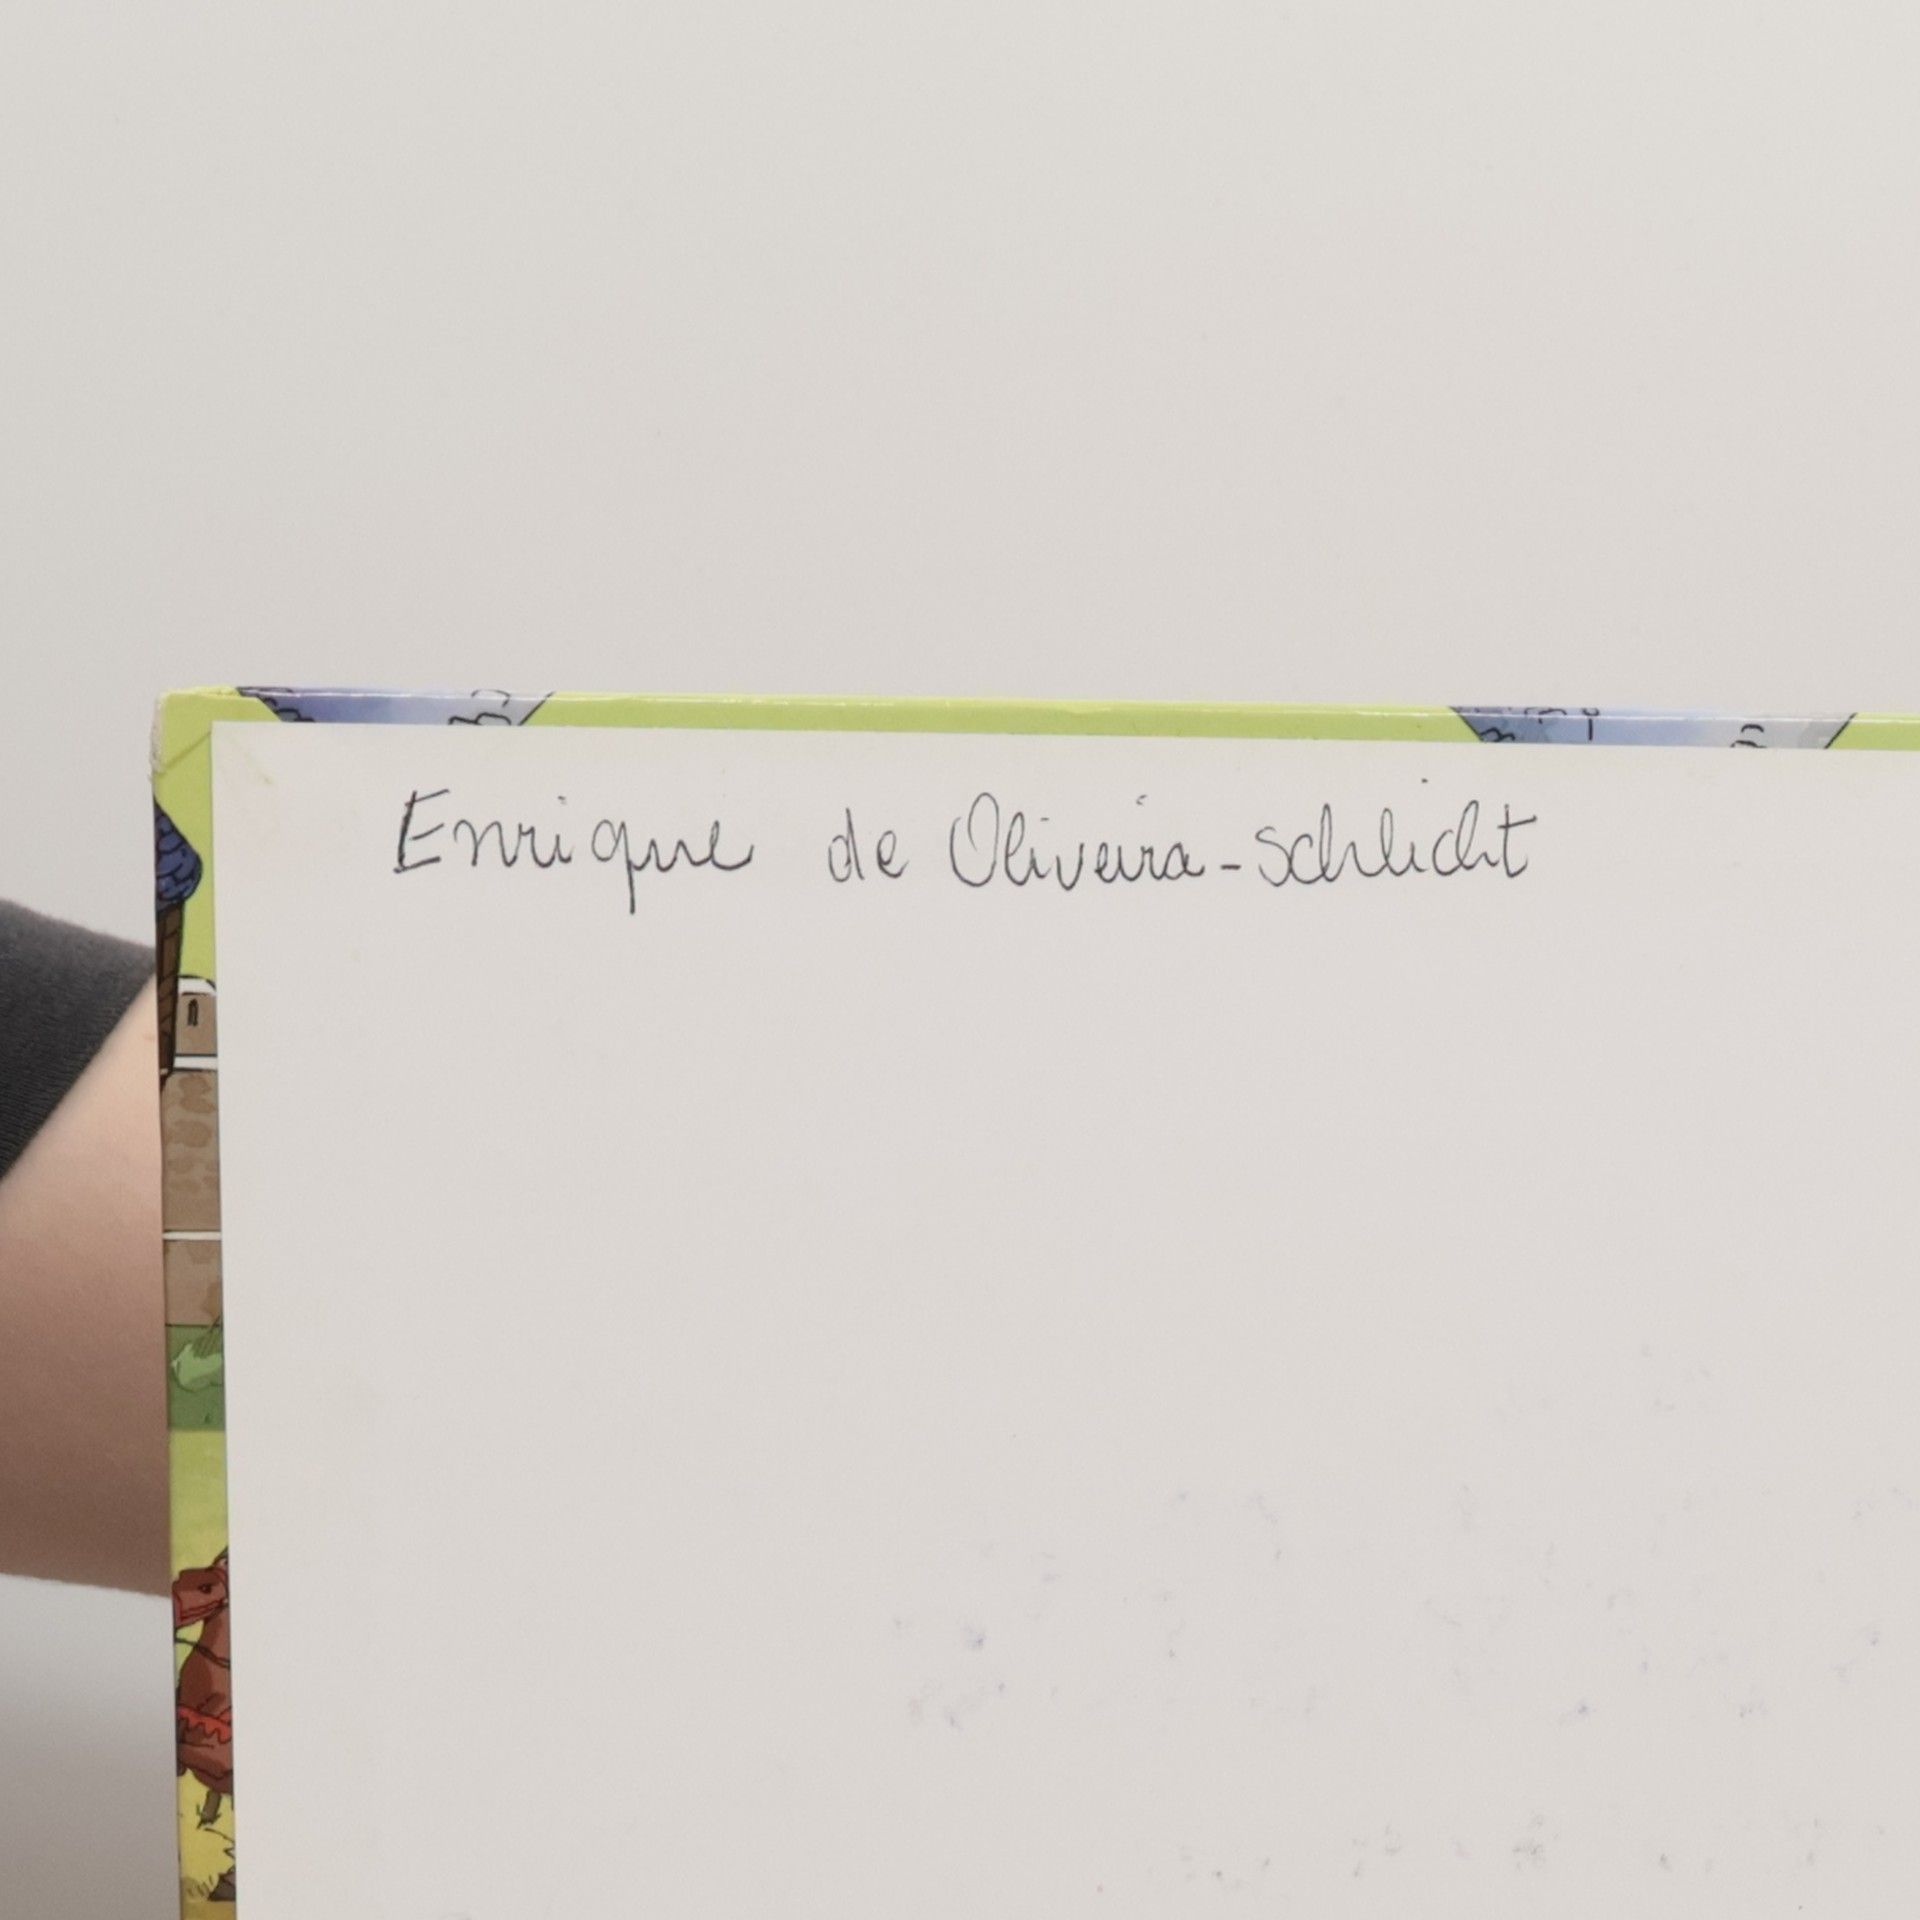 Enrique de Oliveira-Schlicht